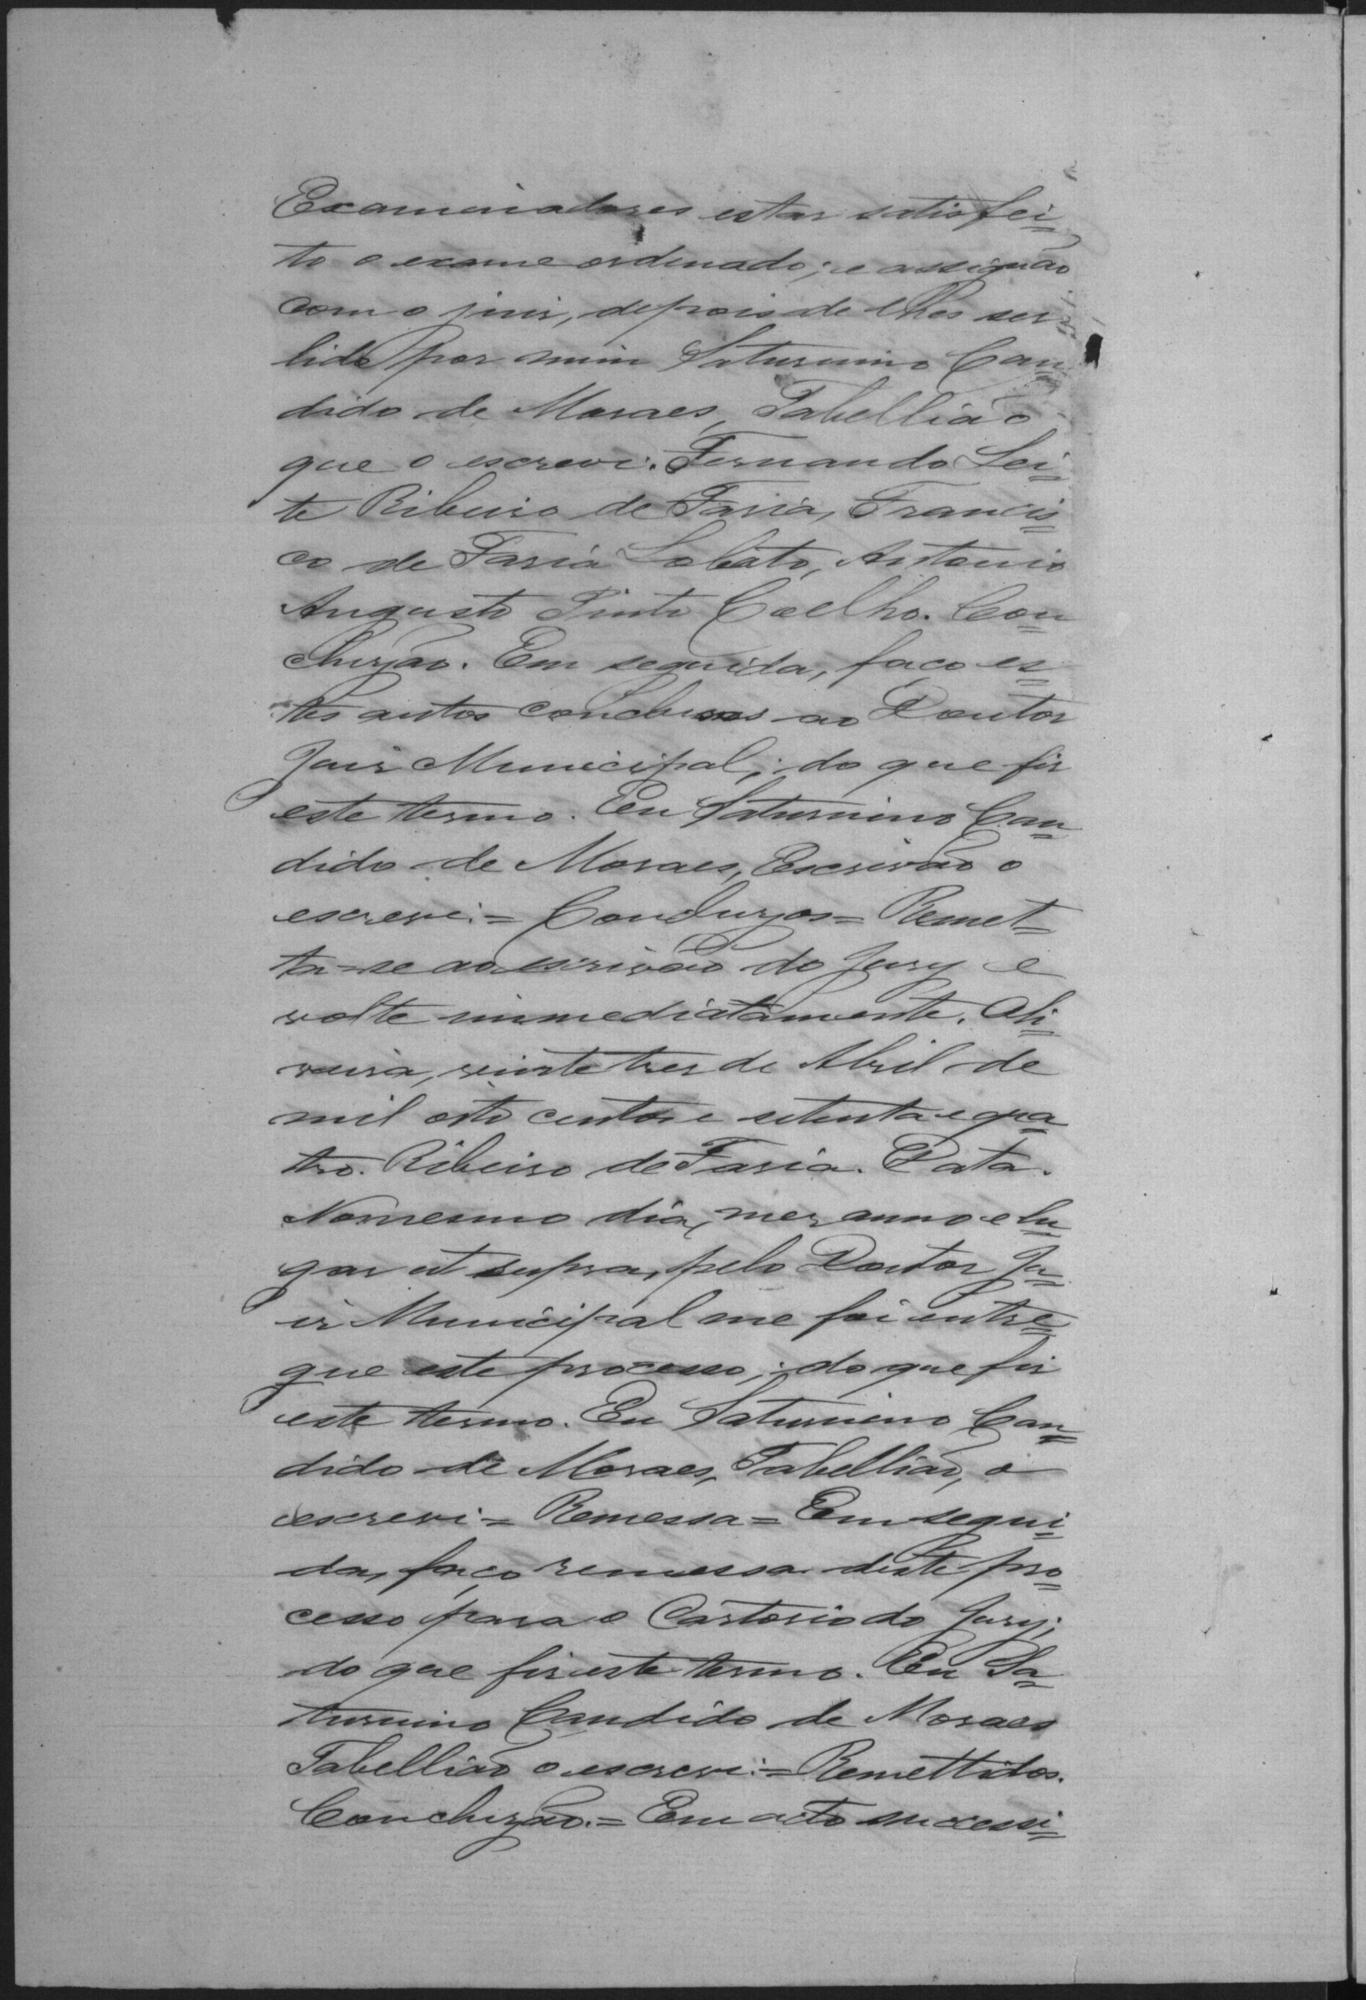 Examinadores estar satisfei=
to o exame ordenado; e assignão
com o juis, depois de lhes ser
lido por mim Saturnino Can=
dido de Moraes, Tabellião
que o escrevi. Fernando Lei=
te Ribeiro de Faria, Francis=
co de Faria Lobato, Antonio
Augusto Pinto Coelho. Con=
cluzão. Em seguida, faço es=
tes autos concluzos ao Doutor
Juis Municipal; do que fis
este termo. Eu Saturnino Can=
dido de Moraes, Escrivão o
escrevi = Concluzos = Remet=
ta-se ao escrivão do Jury e
volte immediatamente. Oli=
veira, vinte tres de Abril de
mil oito centos e setenta e qua=
tro. Ribeiro de Faria. Data.
No mesmo dia, mez anno e lu=
gar ut supra, pelo Doutor Ju=
is Municipal me foi entre=
gue este processo; do que fis
este termo. Eu Saturnino Can=
dido de Moraes, Tabellião, o
escrevi = Remessa = Em segui=
da, faço remessa deste pro=
cesso para o Cartorio do Jury;
do que fis este termo. Eu Sa=
turnino Candido de Moraes
Tabellião o escrevi = Remettidos.
Concluzão. = Em acto successi=